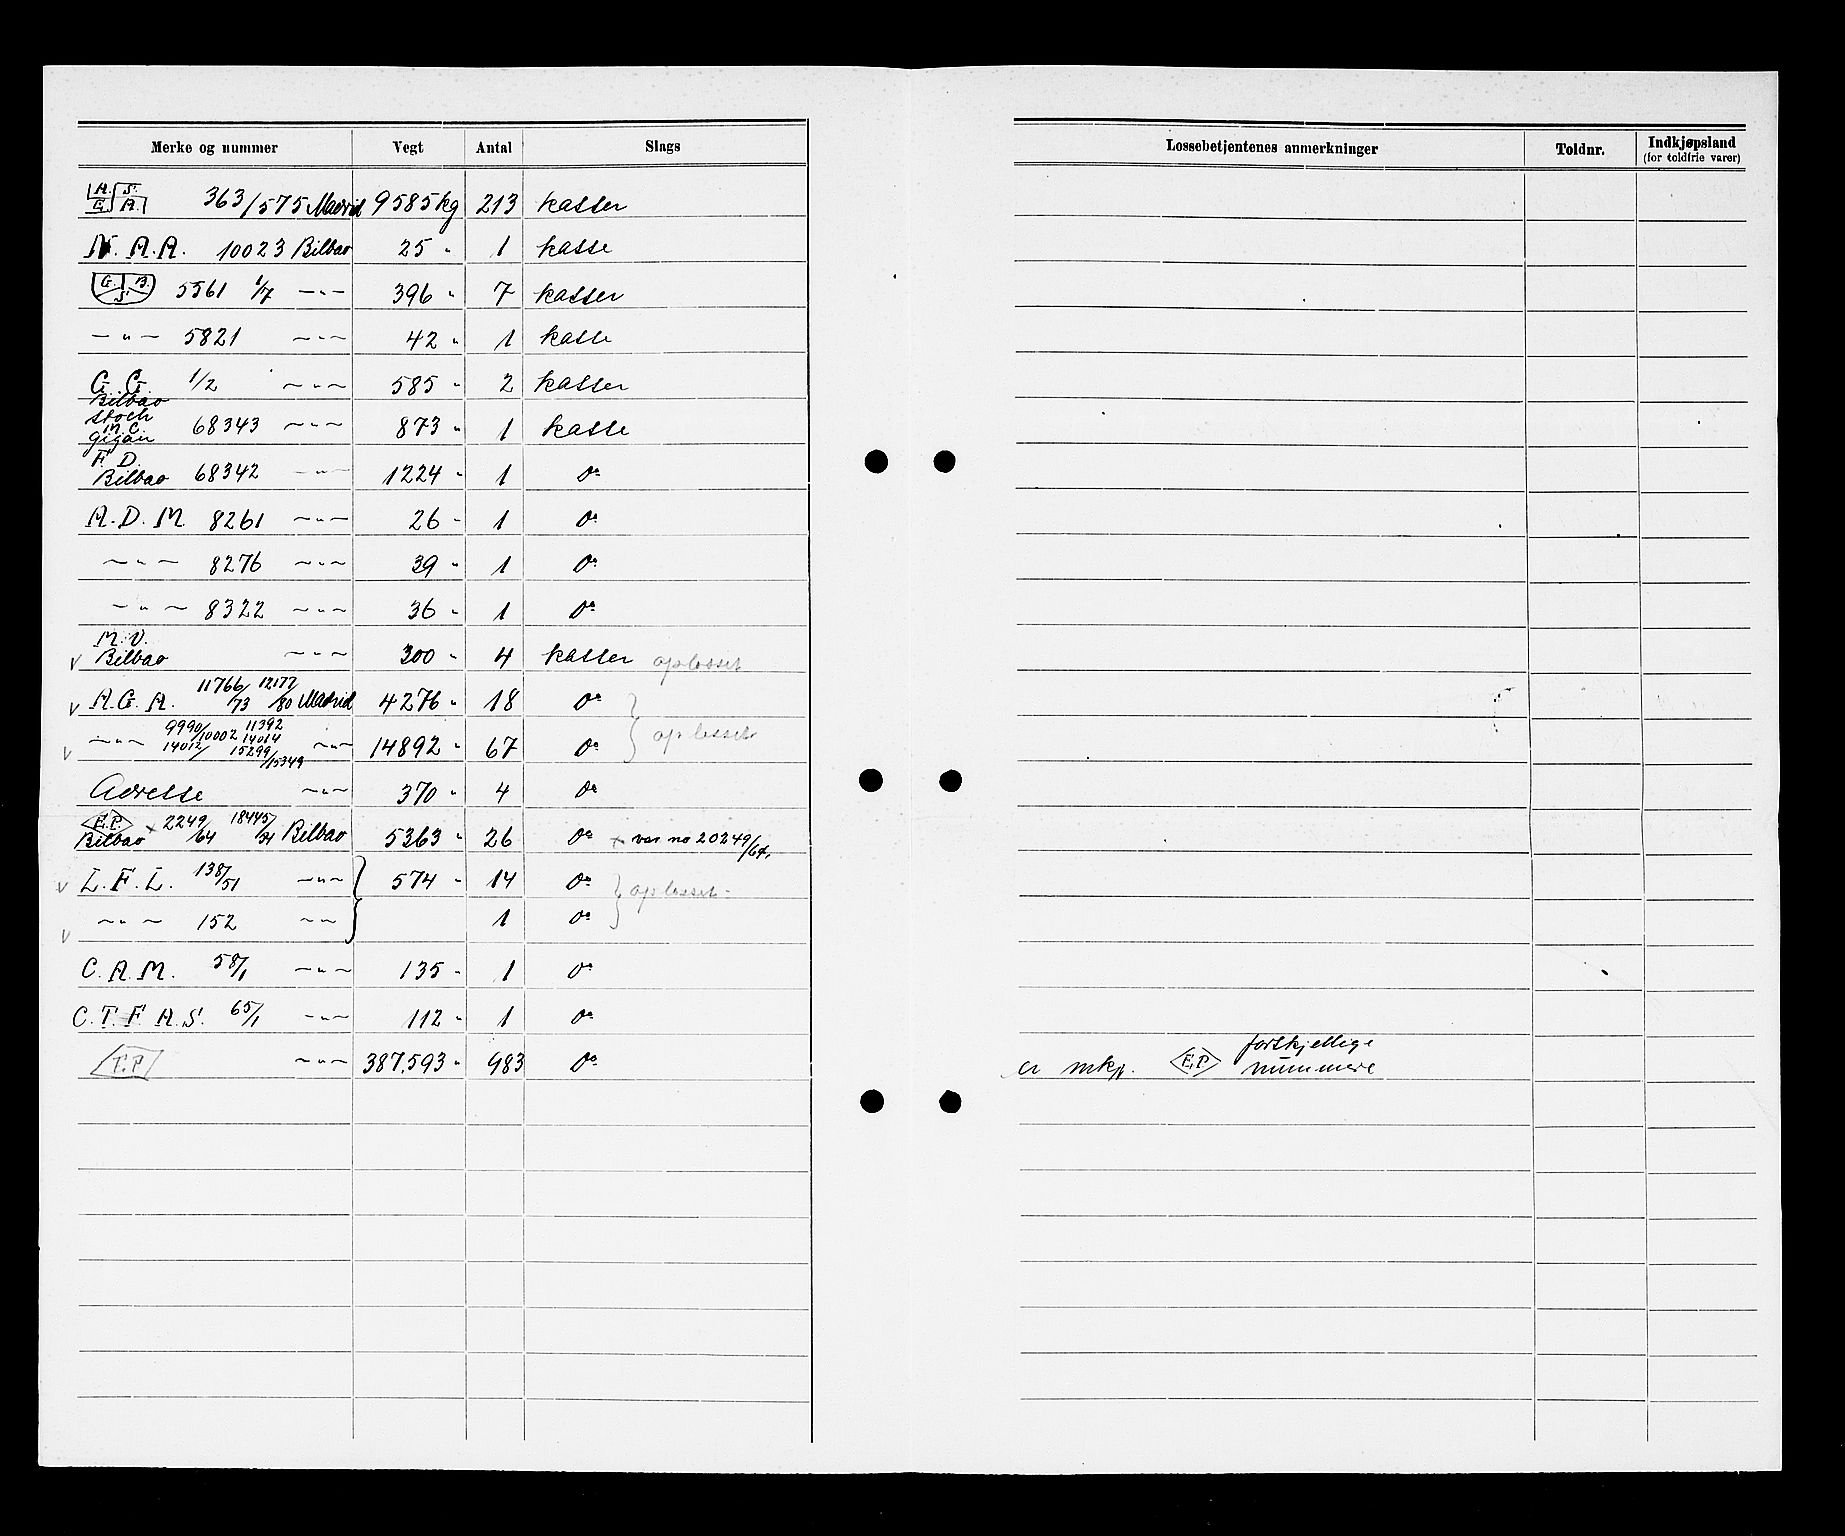 Merke og nummer Vegt Antal Slags
A. S. G. A. 363/575 Madrid 9585 kg 213 kasser
N. A. A. 10023 Bilbao 25 " 1 kasse
G. B. S. 5561 1/7 —"— 396 " 7 kasser
—"— 5821 —"— 42 " 1 kasse
G. G. 1/2 —"— 585 " 2 kasser
Bilbao
M.C. 68343 —"— 873 " 1 kasse
F. D.
Bilbao 68342 —"— 1224 " 1 do
A. D. M 8261 —"— 26 " 1 do
—"— 8276 —"— 39 " 1 do
—"— 8322 —"— 36 " 1 do
M. V.
v Bilbao —"— 300 " 4 kasser oplosset
v A. G. A. 11766/73 12177/80 Madrid 4276 " 18 do
v —"— 9990/10002 11392 14012/14014 15299/15349 —"— 14892 " 67 do oplosset
Adresse —"— 370 " 4 do
E.P. Bilbao x 2249/64 18445/31 Bilbao 5363 " 26 do x var no 20249/64.
v L. F. L. 138/51 —"— 574 " 14 do oplosset
v —"— 152 —"— 1 do
C. A. M. 58/1 —"— 135 " 1 do
C. T. F. A. S. 65/1 —"— 112 " 1 do
F.P —"— 387.593 " 983 do
Lossebetjentenes anmerkninger Toldnr. Indkjøpsland
(for toldfrie varer)
er mkp. E.P forskjellige
nummere